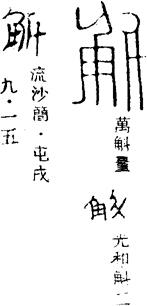 斛
萬斛量
斛
光和斛二
斛
流沙簡·屯戍
九·一五